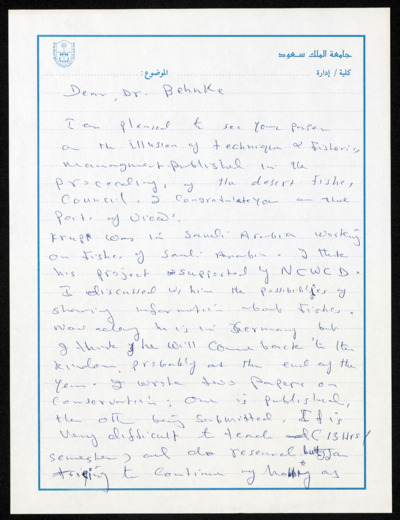 جامعة الملك سعود
كلية / إدارة
الموضوع:
Dear, Dr. Behnke
I am pleased to see your paper
on the illusion of technique & fisheries
managment published in the
proceeding, of the desert fishes
Council. I congratulate you on that
Point of view.
Krupp was in Saudi Arabia working
on fishes of Saudi Arabia. I think
his project supported by NCWCD.
I discussed w, him the possibilies of
sharing information about fishes.
Now aday he is in Germany but
I think he will come back to the
kingdom, probably at the end of the
year. I wrote two papers on
Conservation; one is published,
the oth being submitted. It is
Very difficult to teach (13 Hrs/
semester) and do research but I am
trying to continue my hobby as